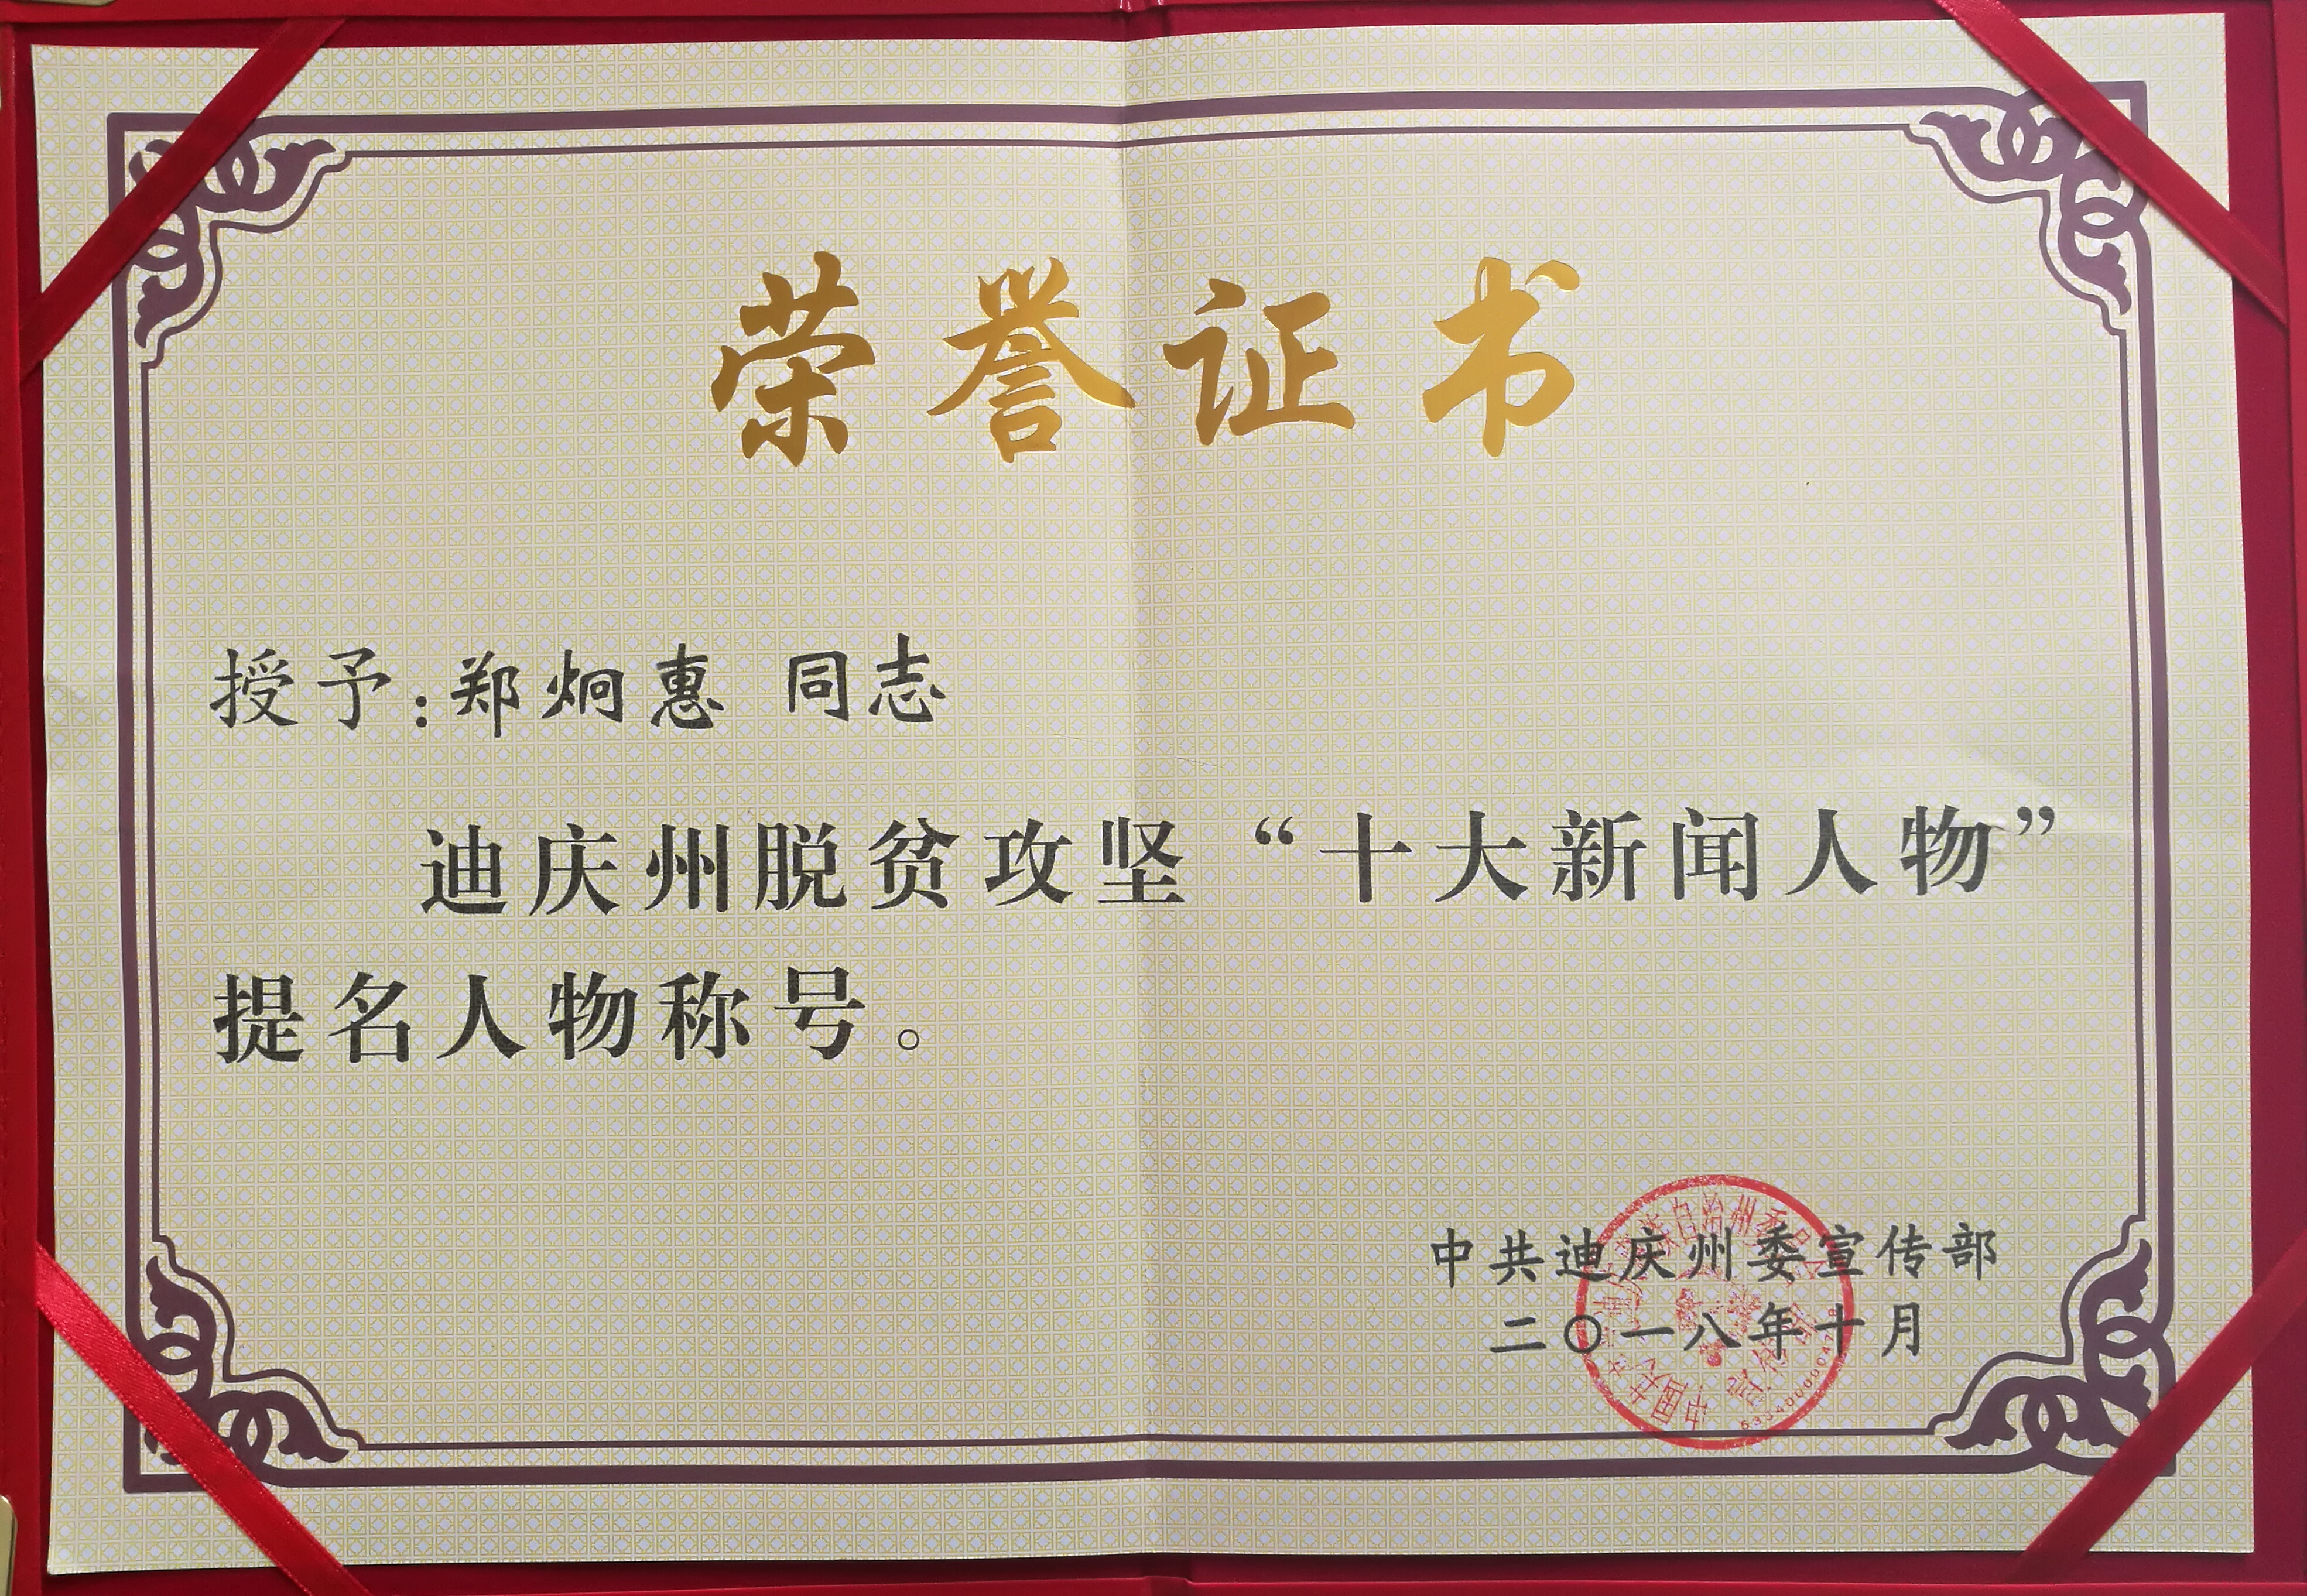 荣誉证书
授予：郑炯惠 同志
迪庆州脱贫攻坚“十大新闻人物”
提名人物称号。
中共迪庆州委宣传部
二〇一八年十月